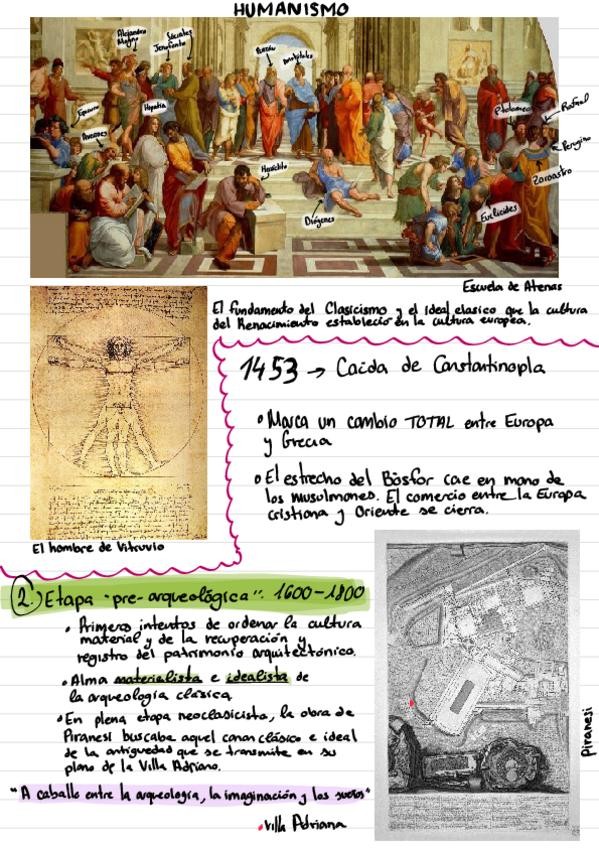 HUMANISMO
Alejandro
Magno
Sócrates
Jenofonte
Platón
Aristóteles
Epicuro
Hypatia
Averroes
Heráclito
Diógenes
Ptolomeo
Rafael
Perugino
Zoroastro
Euclides
Escuela de Atenas
El fundamento del Clasicismo y el ideal clasico que la cultura
del Renacimiento estableció en la cultura europea.
1453 → Caída de Constantinopla
• Marca un cambio TOTAL entre Europa
y Grecia
• El estrecho del Bósfor cae en mano de
los musulmanes. El comercio entre la Europa
cristiana y Oriente se cierra.
El hombre de Vitruvio
2.) Etapa "pre-arqueológica". 1600-1800
• Primeros intentos de ordenar la cultura
material y de la recuperación y
registro del patrimonio arquitectónico.
• Alma materialista e idealista de
la arqueología clásica
• En plena etapa neoclasicista, la obra de
Piranesi buscaba aquel canon clásico e ideal
de la antiguedad que se transmite en su
plano de la Villa Adriano.
"A caballo entre la arqueología, la imaginación y los sueños"
• Villa Adriana
Piranesi